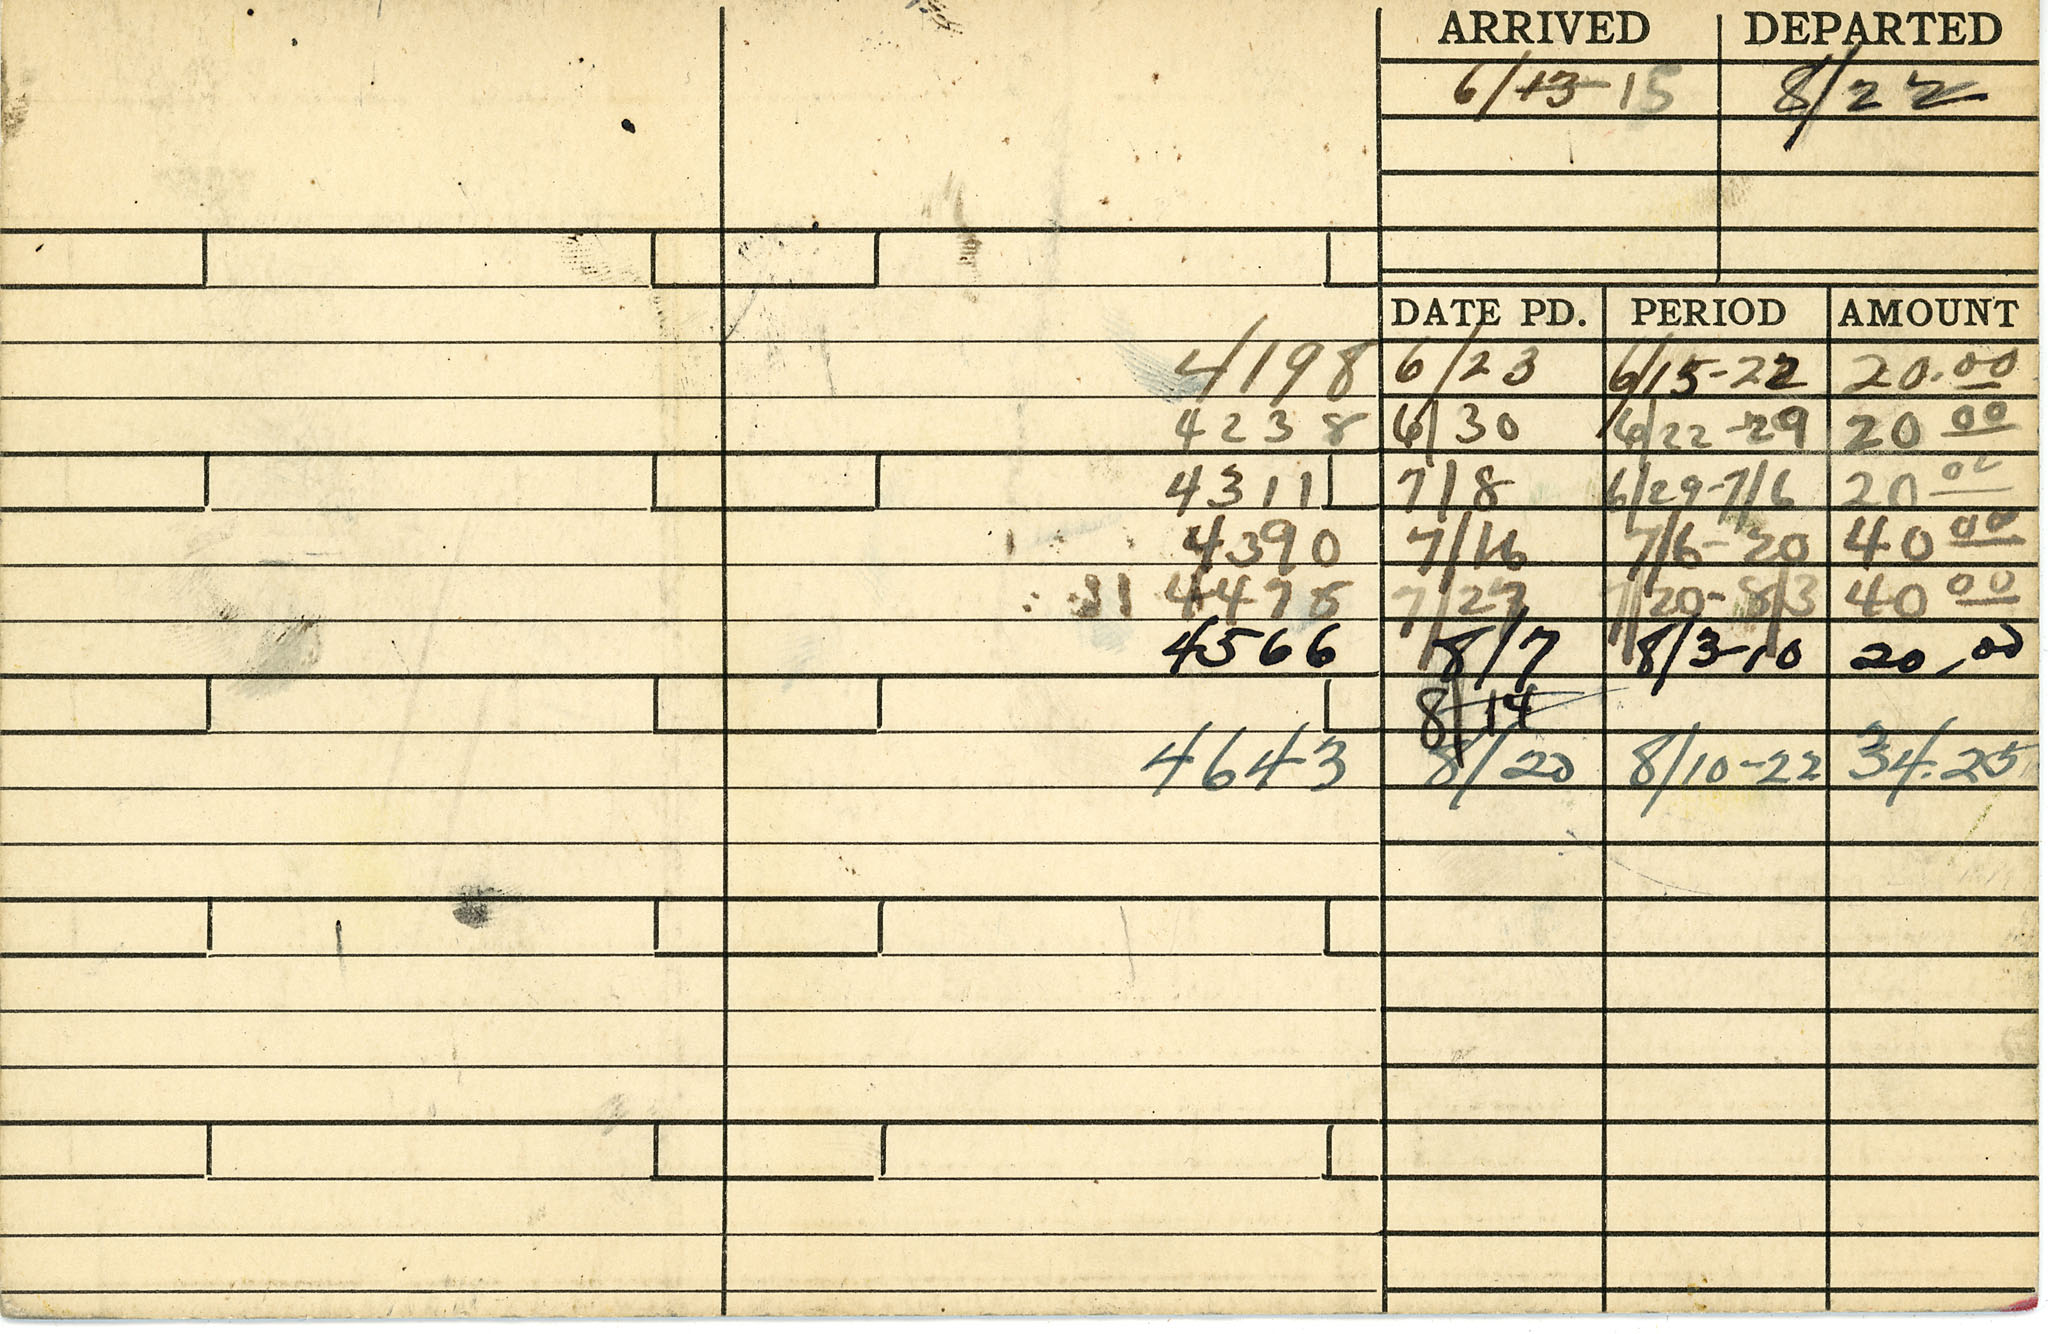 ARRIVED DEPARTED
6/13-15 8/22
DATE PD. PERIOD AMOUNT
4198 6/23 6/15-22 20.00
4238 6/30 6/22-29 20 00
4311 7/8 6/29-7/6 20 00
4390 7/16 7/6-20 40 00
4475 7/27 7/20-8/3 40 00
4566 8/7 8/3-10 20.00
8/14
4643 8/20 8/10-22 34.25